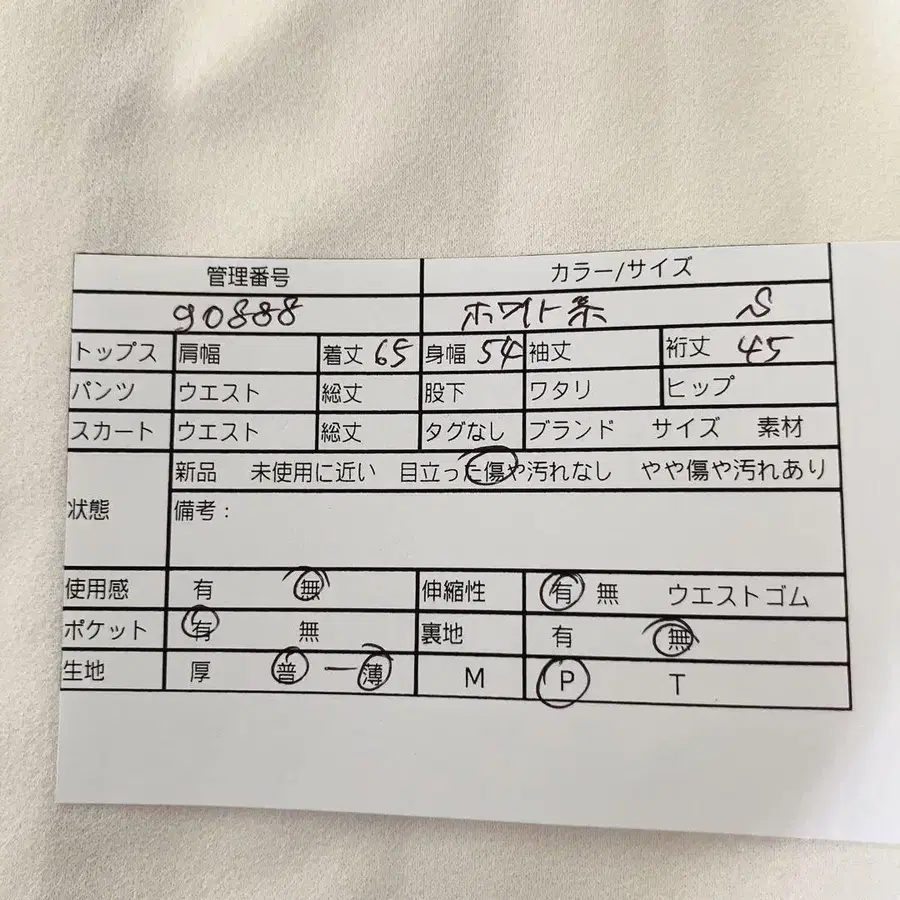 管理番号 カラー/サイズ
90888 ホワイト系 S
トップス 肩幅 着丈 65 身幅 54 袖丈 裄丈 45
パンツ ウエスト 総丈 股下 ワタリ ヒップ
スカート ウエスト 総丈 タグなし ブランド サイズ 素材
新品 未使用に近い 目立った傷や汚れなし やや傷や汚れあり
状態 備考：
使用感 有 無 伸縮性 有 無 ウエストゴム
ポケット 有 無 裏地 有 無
生地 厚 普 ー 薄 M P T